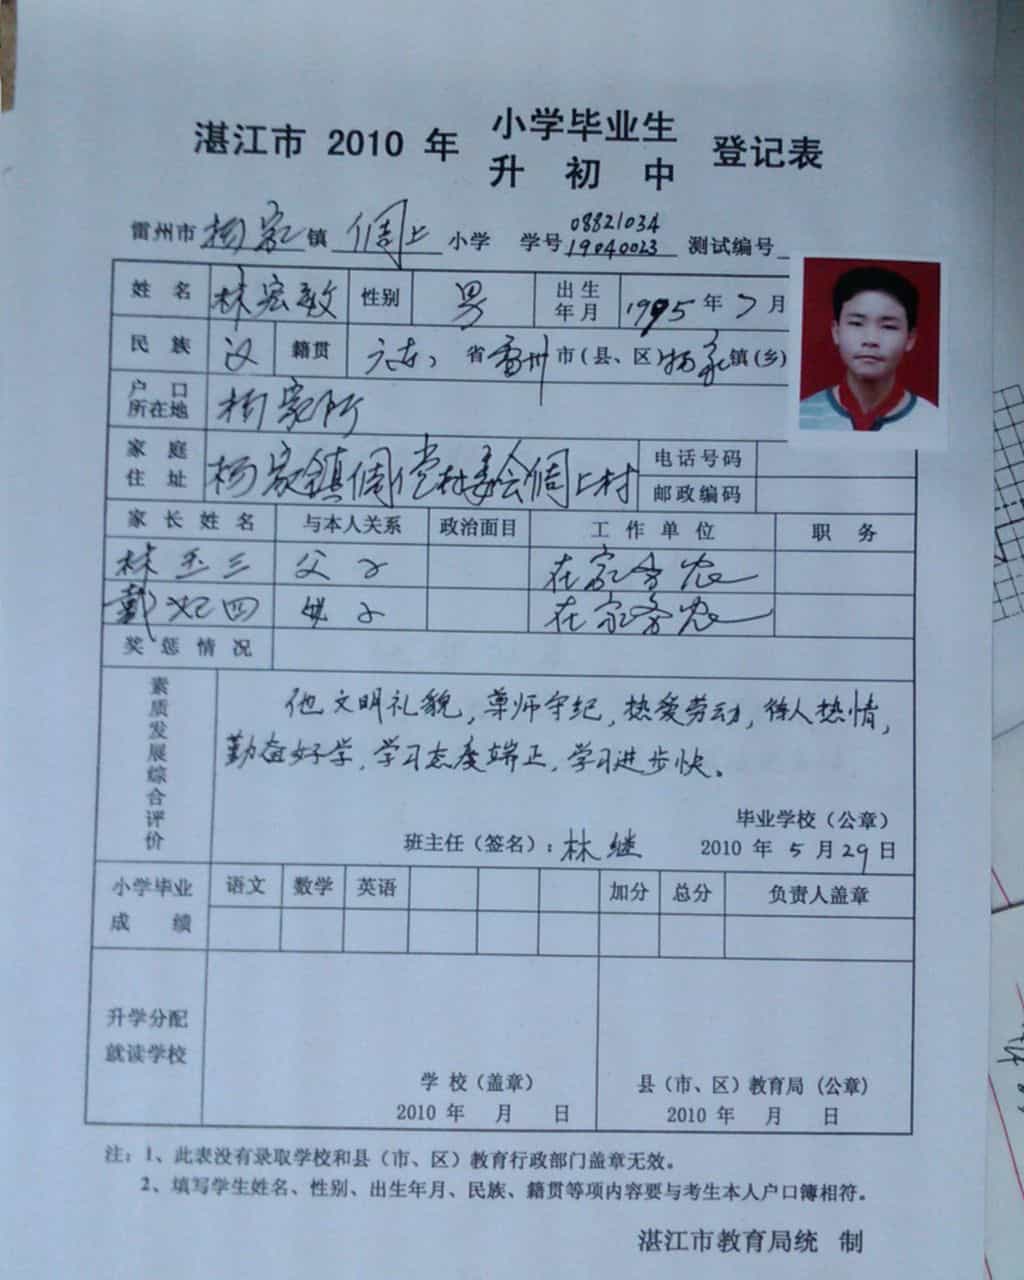 湛江市 2010 年 小学毕业生 登记表
升 初 中
雷州市 杨家 镇 倜上 小学 学号 08821034 19040023 测试编号
姓 名 林宏敏 性别 男 出生年月 1995 年 7 月
民 族 汉 籍贯 广东 省 雷州 市(县、区) 杨家 镇(乡)
户 口 所在地 杨家所
家 庭 住 址 杨家镇 村委会倜上村 电话号码
邮政编码
家 长 姓 名 与本人关系 政治面目 工 作 单 位 职 务
林玉三 父子 在家务农
戴妃四 母子 在家务农
奖 惩 情 况
素质发展综合评价
他文明礼貌,尊师守纪,热爱劳动,待人热情,
勤奋好学,学习态度端正,学习进步快。
毕业学校(公章)
班主任(签名): 林继 2010 年 5 月 29 日
小学毕业成 绩 语文 数学 英语 加分 总分 负责人盖章
升学分配
就读学校
学 校(盖章) 县(市、区)教育局(公章)
2010 年 月 日 2010 年 月 日
注: 1、此表没有录取学校和县(市、区)教育行政部门盖章无效。
2、填写学生姓名、性别、出生年月、民族、籍贯等项内容要与考生本人户口簿相符。
湛江市教育局统 制